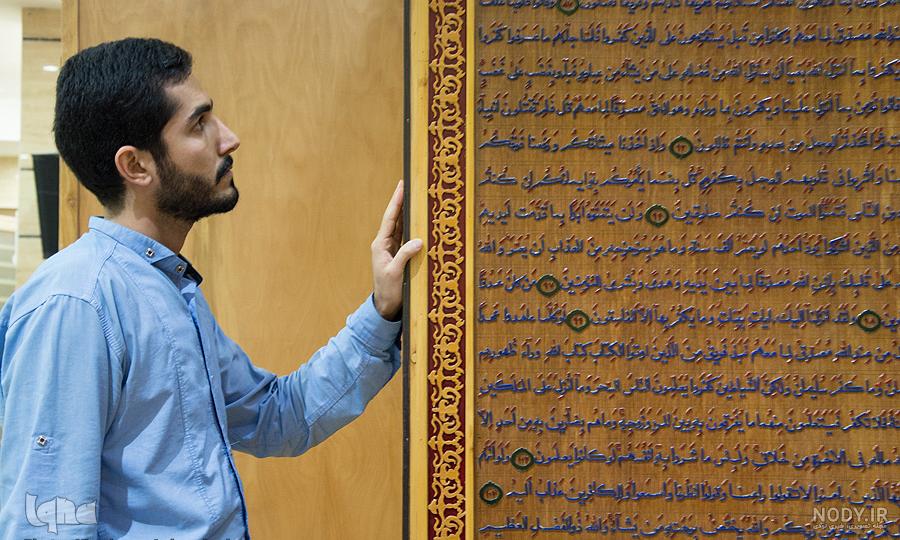 الله مصدق لما معهم وكانوا من قبل يستفتحون على الذين كفروا فلما جاءهم ما عرفوا كفروا
يكفروا بما أنزل الله بغيا أن ينزل الله من فضله على من يشاء من عباده فباءو بغضب على غضب
قالوا نؤمن بما أنزل علينا ويكفرون بما وراءه وهو الحق مصدقا لما معهم قل فلم تقتلون أنبياء
ثم اتخذتم العجل من بعده وأنتم ظالمون ٩٢ وإذ أخذنا ميثاقكم ورفعنا فوقكم
وأشربوا في قلوبهم العجل بكفرهم قل بئسما يأمركم به إيمانكم إن كنتم
دون الناس فتمنوا الموت إن كنتم صادقين ٩٤ ولن يتمنوه أبدا بما قدمت أيديهم
من الذين أشركوا يود أحدهم لو يعمر ألف سنة وما هو بمزحزحه من العذاب أن يعمر والله
على قلبك بإذن الله مصدقا لما بين يديه وهدى وبشرى للمؤمنين ٩٧ من كان عدوا
٩٨ ولقد أنزلنا إليك آيات بينات وما يكفر بها إلا الفاسقون ٩٩ أوكلما عاهدوا عهدا
من عند الله مصدق لما معهم نبذ فريق من الذين أوتوا الكتاب كتاب الله وراء ظهورهم
وما كفر سليمان ولكن الشياطين كفروا يعلمون الناس السحر وما أنزل على الملكين
فلا تكفر فيتعلمون منهما ما يفرقون به بين المرء وزوجه وما هم بضارين به من أحد إلا
ماله في الآخرة من خلاق ولبئس ما شروا به أنفسهم لو كانوا يعلمون ١٠٢ ولو أنهم
الذين آمنوا لا تقولوا راعنا وقولوا انظرنا واسمعوا وللكافرين عذاب أليم ١٠٤
من ربكم والله يختص برحمته من يشاء والله ذو الفضل العظيم
Iqna
NODY.IR